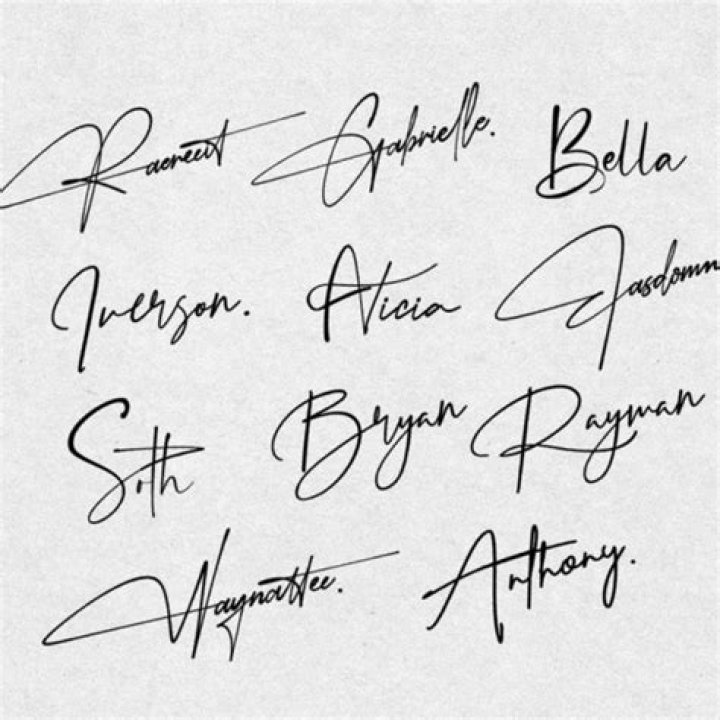 Raereut Gabrielle. Bella
Iverson. Alicia Jasdomn
Sith Bryan Rayman
Waynattee. Anthony.